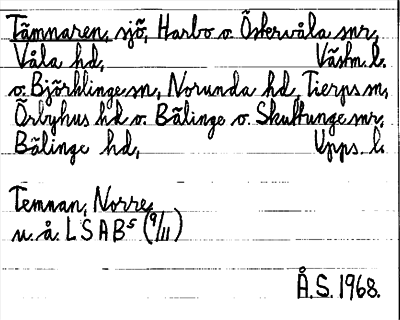 Tämnaren, sjö, Harbo o. Östervåla snr,
Våla hd, Västm. l.
o. Björklinge sn, Norunda hd, Tierps sn,
Örbyhus hd o. Bälinge o. Skuttunge snr,
Bälinge hd, Upps. l.
Temnan, Norre,
u. å. L S A B⁵ (9/11)
Å.S. 1968.